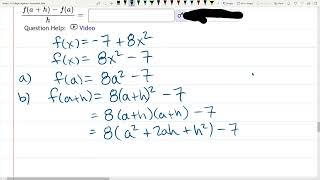 f(a + h) − f(a)
h
=
Question Help: Video
f(x) = -7 + 8x²
f(x) = 8x² - 7
a) f(a) = 8a² - 7
b) f(a+h) = 8(a+h)² - 7
= 8(a+h)(a+h) - 7
= 8(a² + 2ah + h²) - 7